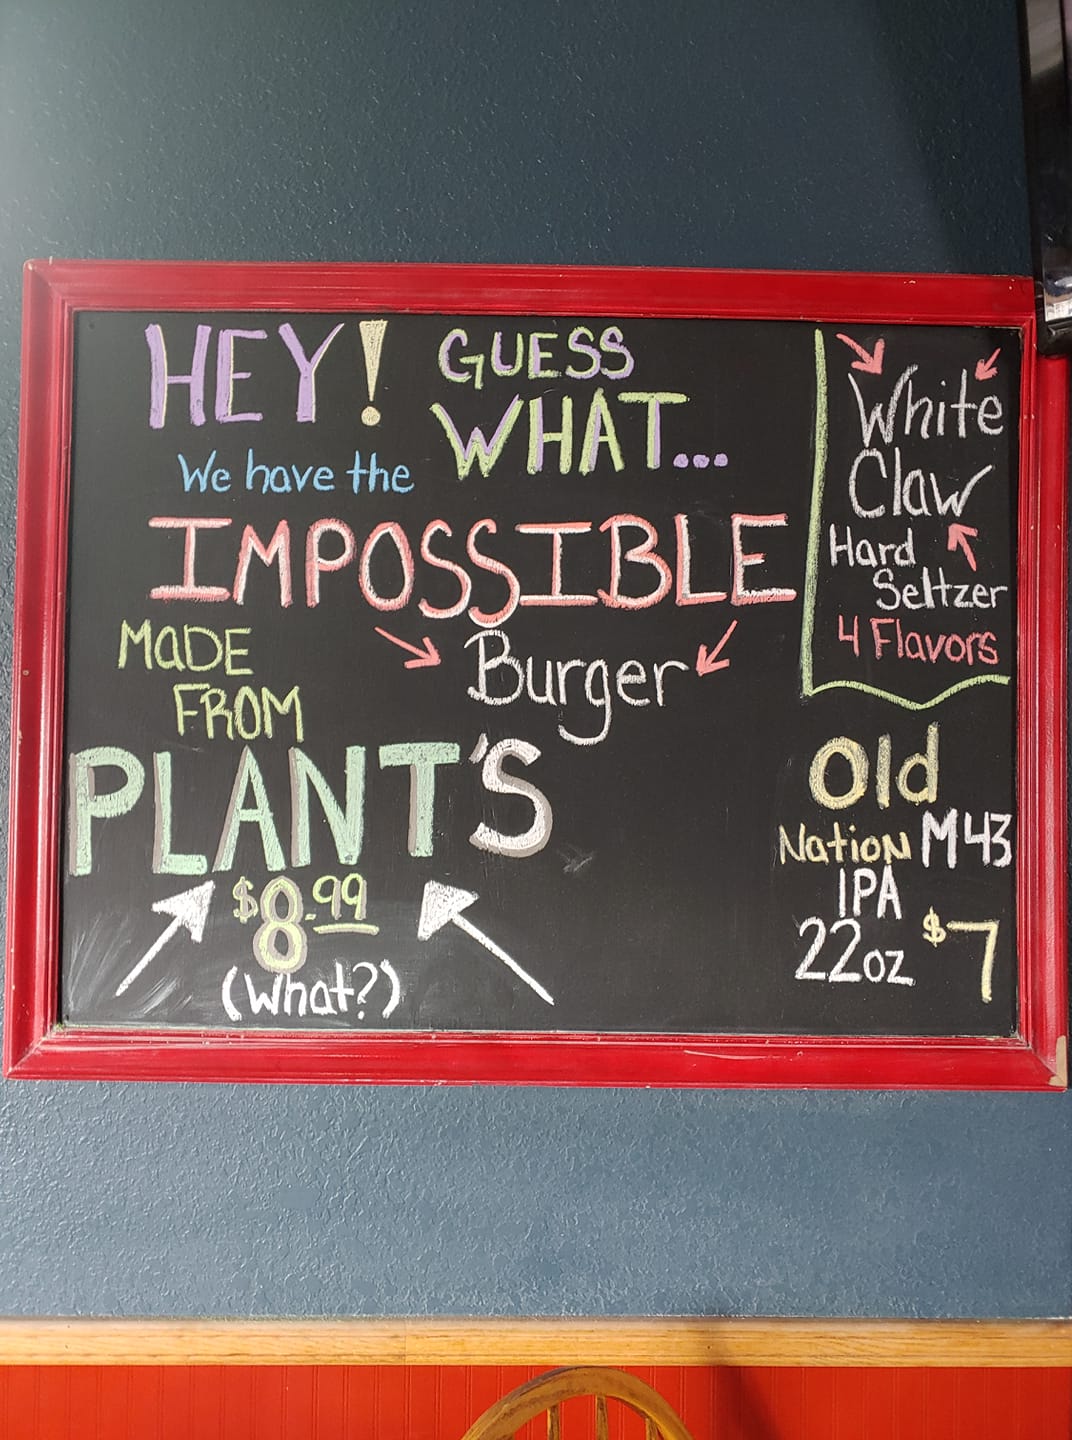 HEY! GUESS
WHAT...
We have the
IMPOSSIBLE
Burger
MADE
FROM
PLANT'S
$8.99
(What?)
White
Claw
Hard
Seltzer
4 Flavors
Old
Nation M43
IPA
22oz $7